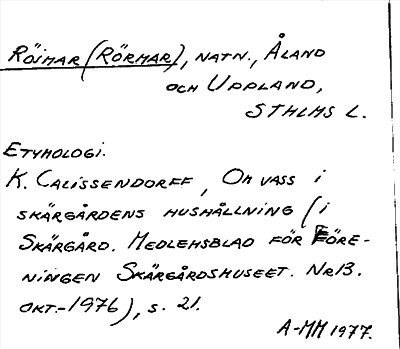 RÖJMAR (RÖRMAR), NATN., ÅLAND
OCH UPPLAND,
STHLMS L.
ETYMOLOGI.
K. CALISSENDORFF, OM VASS I
SKÄRGÅRDENS HUSHÅLLNING (I
SKÄRGÅRD. MEDLEMSBLAD FÖR FÖRE-
NINGEN SKÄRGÅRDSMUSEET. NR13.
OKT.-1976), S. 21.
A-MM 1977.